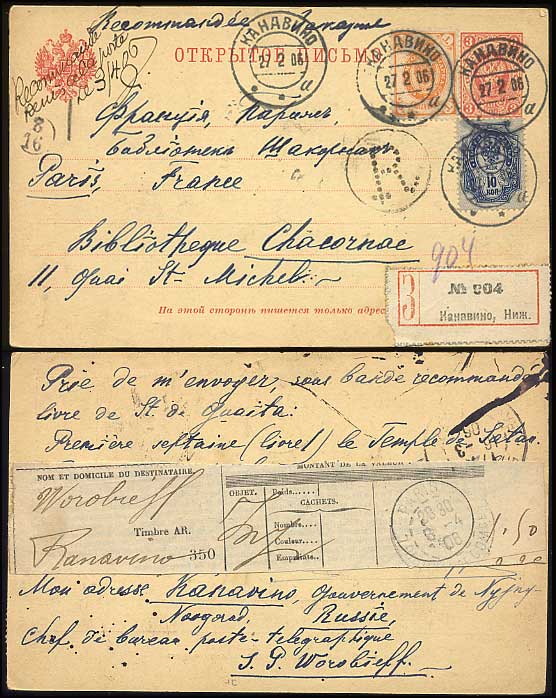 Recommandée
ОТКРЫТОЕ ПИСЬМО
Recommandé
КАНАВИНО
27 2 06
а
КАНАВИНО
27 2 06
а
КАНАВИНО
27 2 06
а
3
3
Франція, Парижъ,
Библіотекъ Шакорнакъ
Paris, France
10
КОП
Bibliotheque Chacornac
11, Quai St-Michel.
904
На этой сторонѣ пишется только адресъ
3
№ 904
Канавино, Ниж.
Prie de m'envoyer sous bande recommandée
livre de St de Guaita:
Première septaine (livre I) le Temple de Satan.
NOM ET DOMICILE DU DESTINATAIRE.
MONTANT DE LA VALEUR
Worobieff
OBJET.
Poids
CACHETS.
Timbre AR.
Nombre
Couleur
Empreinte
Kanavino 350
PARIS
1,50
Mon adresse Kanavino, Gouvernement de Nijny-
Novgorod, Russie,
Chef de bureau poste-telegraphique
S. P. Worobieff.